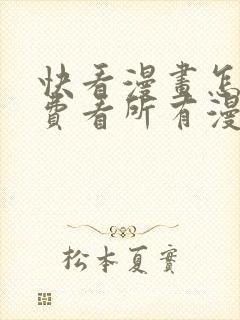 快看漫畫怎
費看所有漫
松本夏實